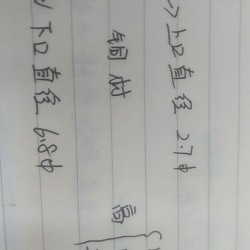 上口直径 2.7中
铜材 高
下口直径 6.8中